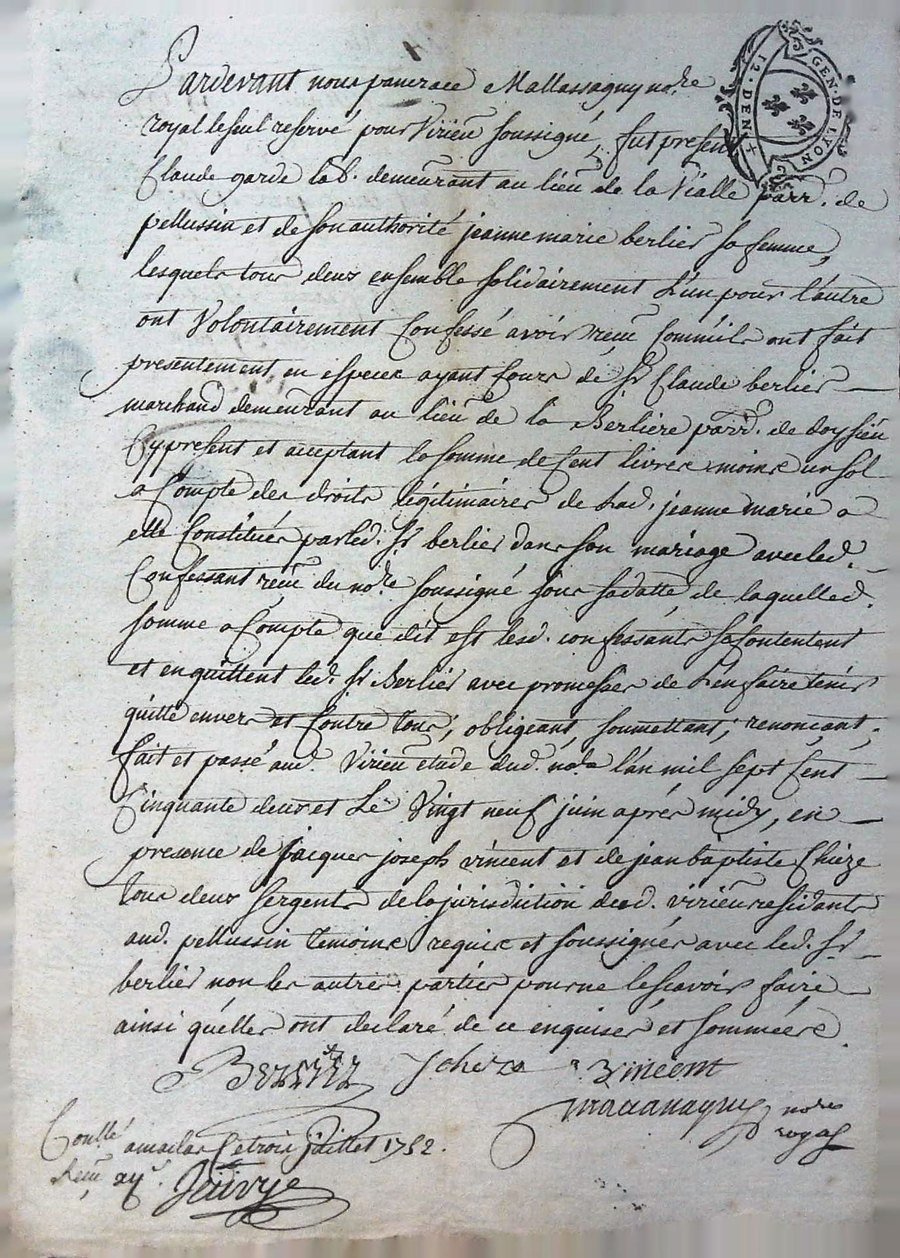 GEN·DE LYON
12·DEN
Pardevant nous pancrace Mallassagny no.re
royal le seul reservé pour Virieu soussigné, fut present
Claude garde lab.r demeurant au lieu de la Vialle parr.e de
pellussin et de son authorité jeanne marie berlier sa femme,
lesquels tous deux ensemble solidairement L'un pour l'autre
ont Volontairement Confessé avoir receu Comme ils ont fait
presentement en especes ayant Cours de S.r Claude berlier
marchand demeurant au lieu de la Berliere parr.e de doysieu
Cy present et acceptant la somme de Cent livres moins un sol
a Compte des droits legitimaires de lad. jeanne marie a
elle Constitués par led. S.r berlier dans son mariage avec led.
Confessant receu du no.re soussigné sous sa datte, de laquelle d.
somme a Compte que dit est lesd. confessants se Contentent
et en quittent led. S.r Berlier avec promesses de L'en faire tenir
quitte envers et Contre tous, obligeant, soumettant, renoncant,
fait et passé aud. Virieu etude dud. no.re l'an mil sept Cent
Cinquante deux et Le Vingt neuf juin aprés midy, en
presence de jacques joseph vincent et de jean baptiste Chieze
tous deux sergents de la jurisdiction dud. virieu residants
aud. pellussin temoins requis et soussignés avec led. S.r
berlier non les autres parties pour ne le scavoir faire
ainsi qu'elles ont declaré de ce enquises et sommées.
Berlier Chieze Vincent
Mallassagny no.re
royal
Con.llé a maclas Ce trois juillet 1752.
Receu